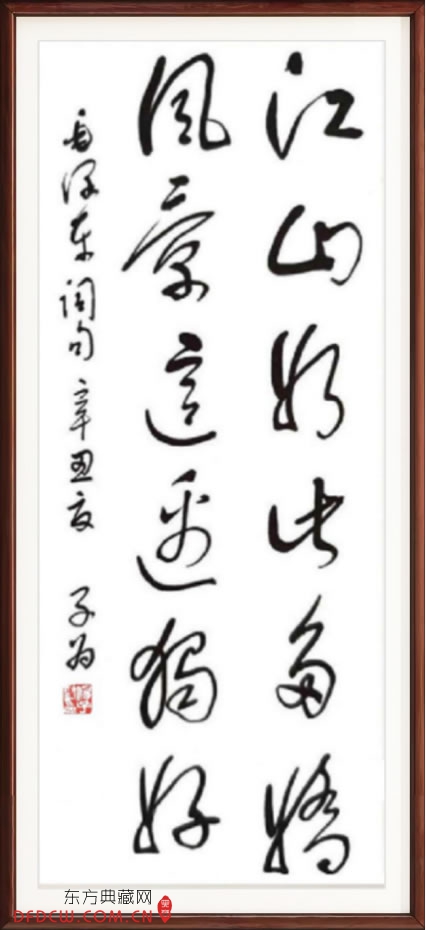 江山如此多娇
风景这边独好
毛泽东词句 辛丑夏 子为
东方典藏网
DFDCW.COM.CN